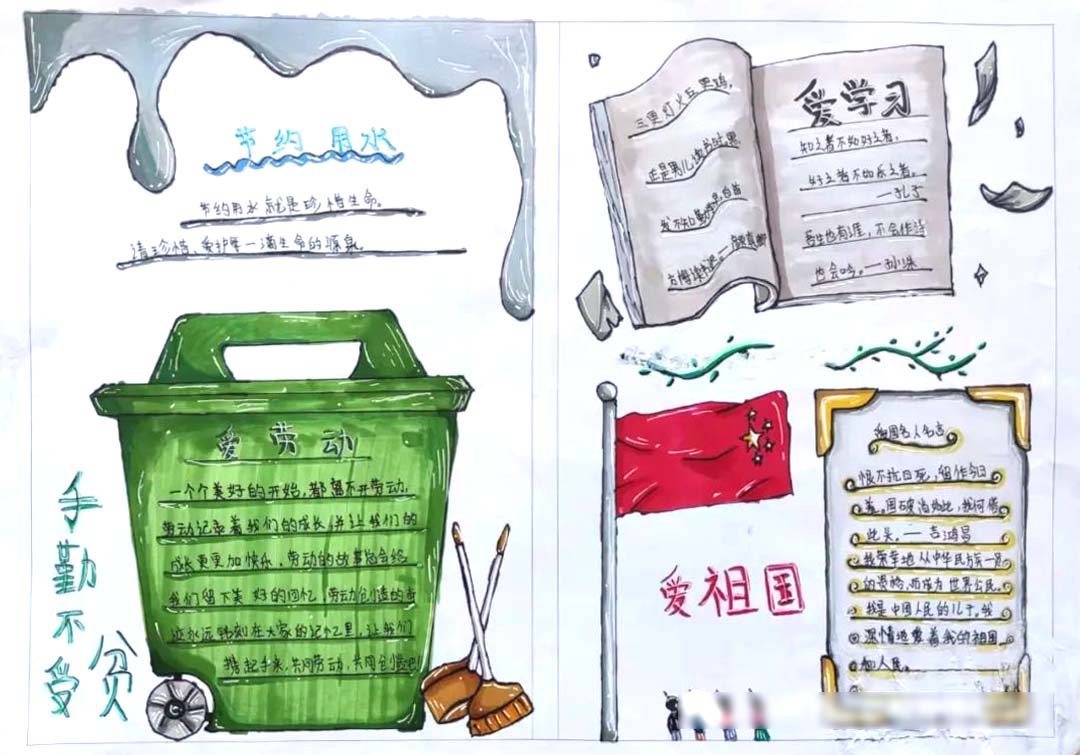 节约用水
节约用水就是珍惜生命。
请珍惜、爱护每一滴生命的源泉。
爱劳动
一个个美好的开始，都离不开劳动，
劳动记录着我们的成长，并让我们的
成长更更加快乐，劳动的故事总会给
我们留下美好的回忆，劳动创造的奇
迹永远镌刻在大家的记忆里，让我们
携起手来，共同劳动，共同创造吧！
手勤不受贫
三更灯火五更鸡，
正是男儿读书时
黑发不知勤学早
方悔读书迟。
爱学习
知之者不如好之者，
好之者不如乐之者。
——孔子
吾生也有涯，不会作诗
也会吟。——孙洙
爱祖国
爱国名人名言
恨不抗日死，留作今日
羞。国破尚如此，我何惜
此头。——吉鸿昌
我荣幸地从中华民族一员
的资格，而成为世界公民。
我是中国人民的儿子。我
深情地爱着我的祖国
和人民。